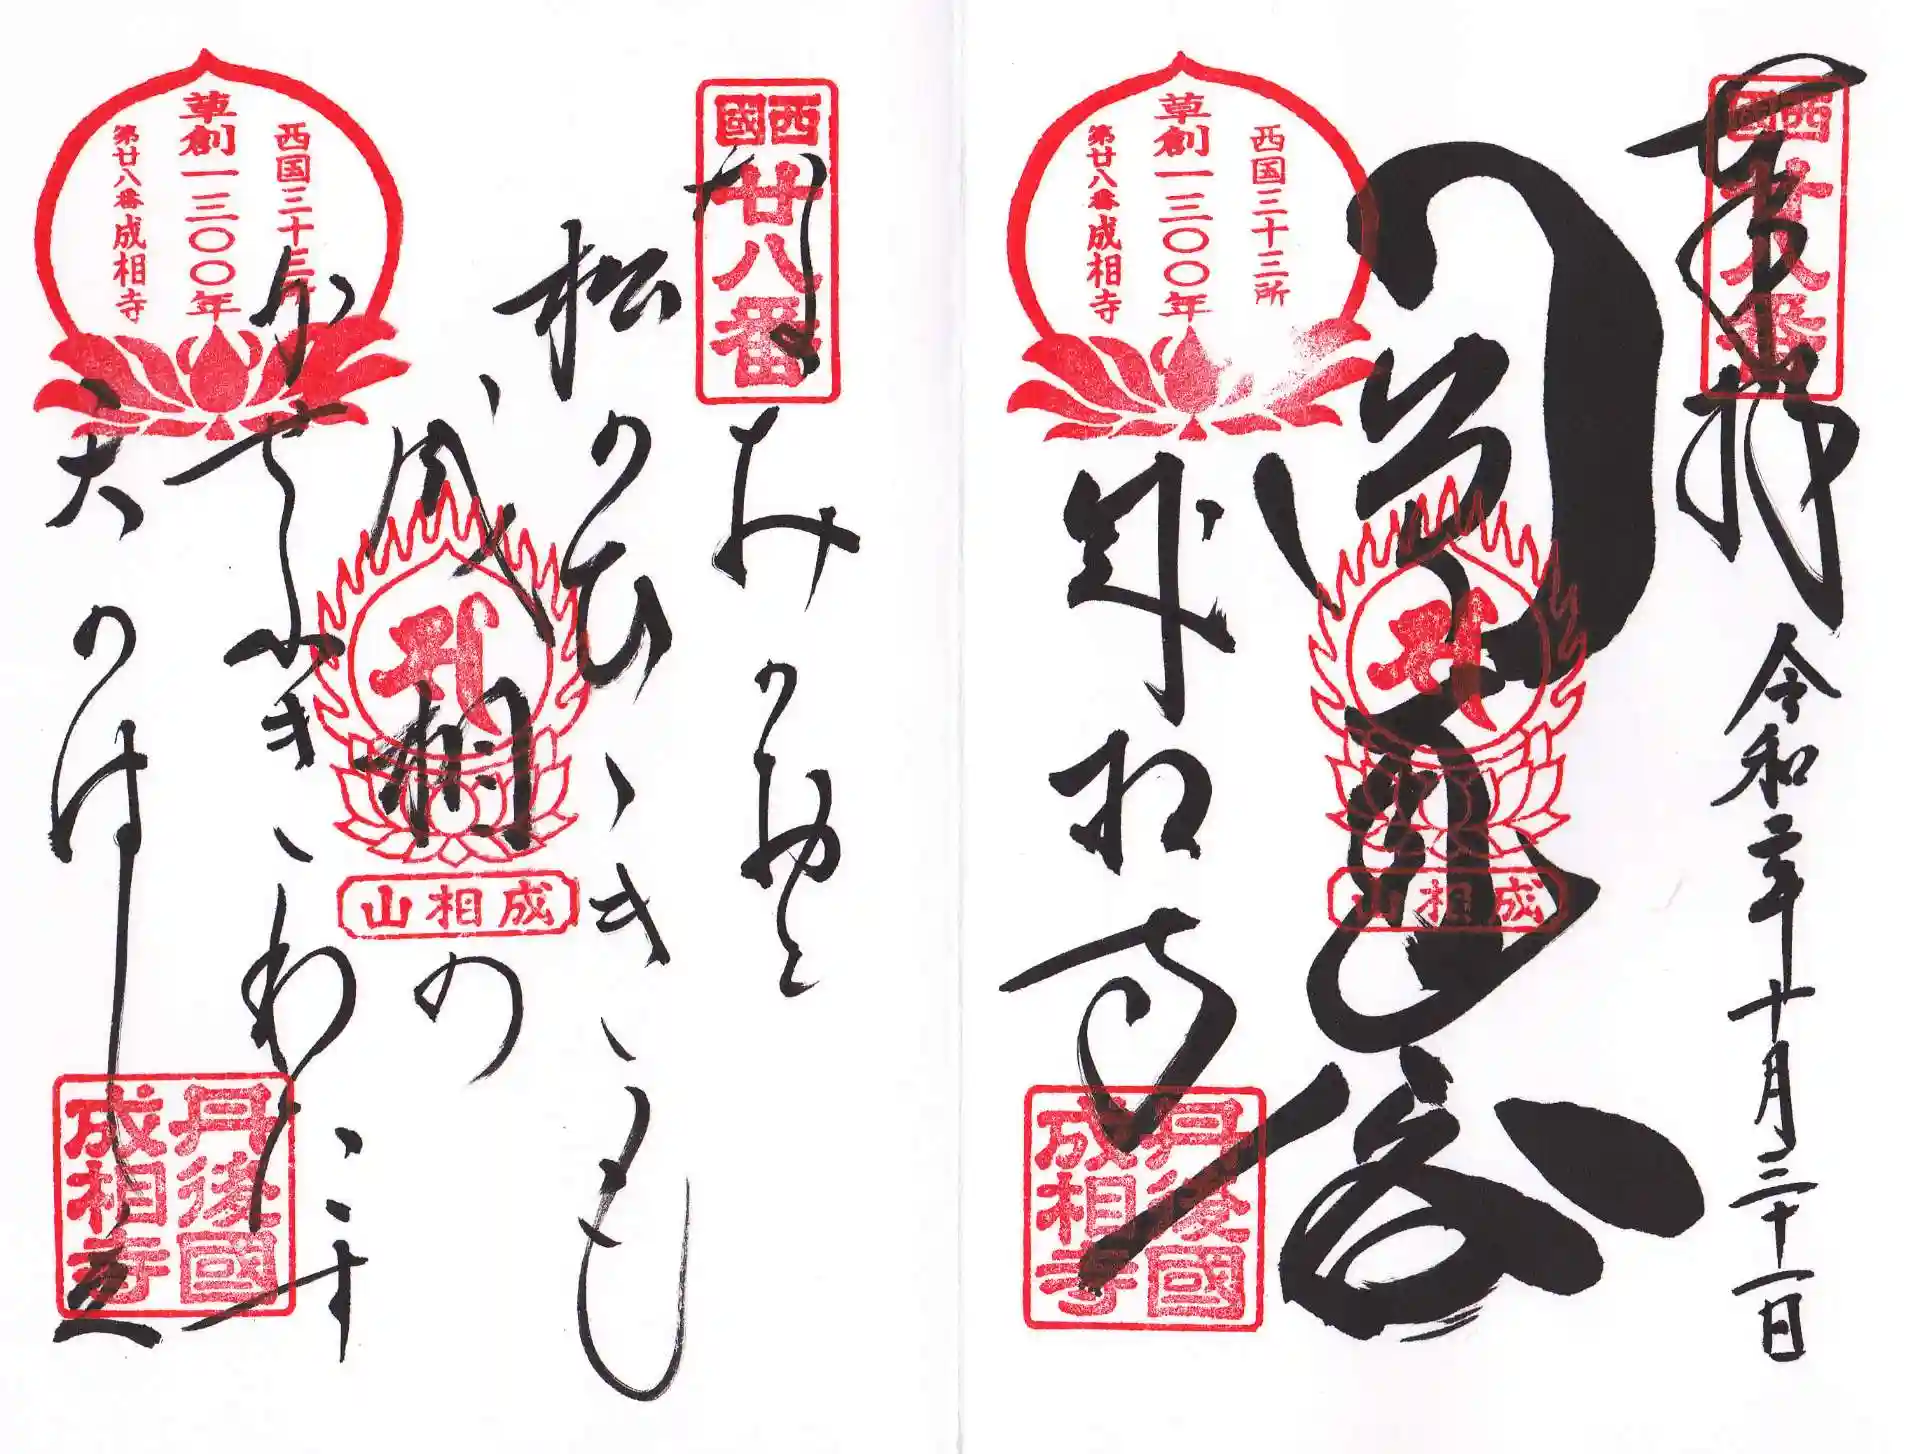 西國
廿八番
奉拝
令和二年十月三十一日
成相山
西国三十三所
草創一三〇〇年
第廿八番成相寺
成相寺
丹後國
成相寺
西國
廿八番
なみのおと
松のひゞきも
成相の
成相山
西国三十三所
草創一三〇〇年
第廿八番成相寺
かぜふきわたす
天のはし立
丹後國
成相寺